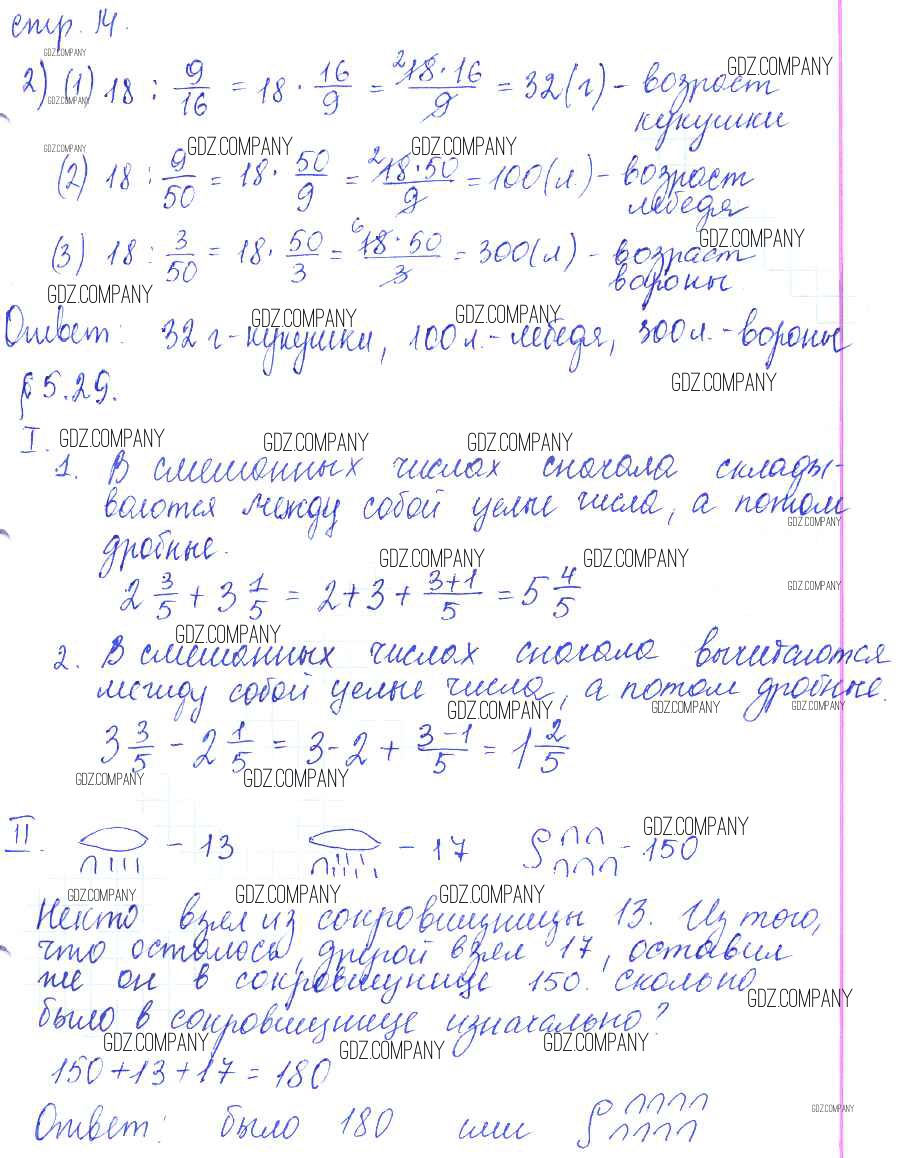 стр. 14.
2) (1) 18 : 9/16 = 18 · 16/9 = ²18·16/9 = 32(г) – возраст
кукушки
(2) 18 : 9/50 = 18 · 50/9 = ²18·50/9 = 100(л) – возраст
лебедя
(3) 18 : 3/50 = 18 · 50/3 = ⁶18·50/3 = 300(л) – возраст
вороны
Ответ: 32 г – кукушки, 100 л. – лебедя, 300 л. – вороны
§ 5.29.
I.
1. В смешанных числах сначала склады-
ваются между собой целые числа, а потом
дробные.
2 3/5 + 3 1/5 = 2+3+ 3+1/5 = 5 4/5
2. В смешанных числах сначала вычитаются
между собой целые числа, а потом дробные.
3 3/5 – 2 1/5 = 3-2 + 3-1/5 = 1 2/5
II. – 13 – 17 – 150
Некто взял из сокровищницы 13. Из того,
что осталось, другой взял 17, оставил
же он в сокровищнице 150. Сколько
было в сокровищнице изначально?
150+13+17 = 180
Ответ: было 180 или
GDZ.COMPANY